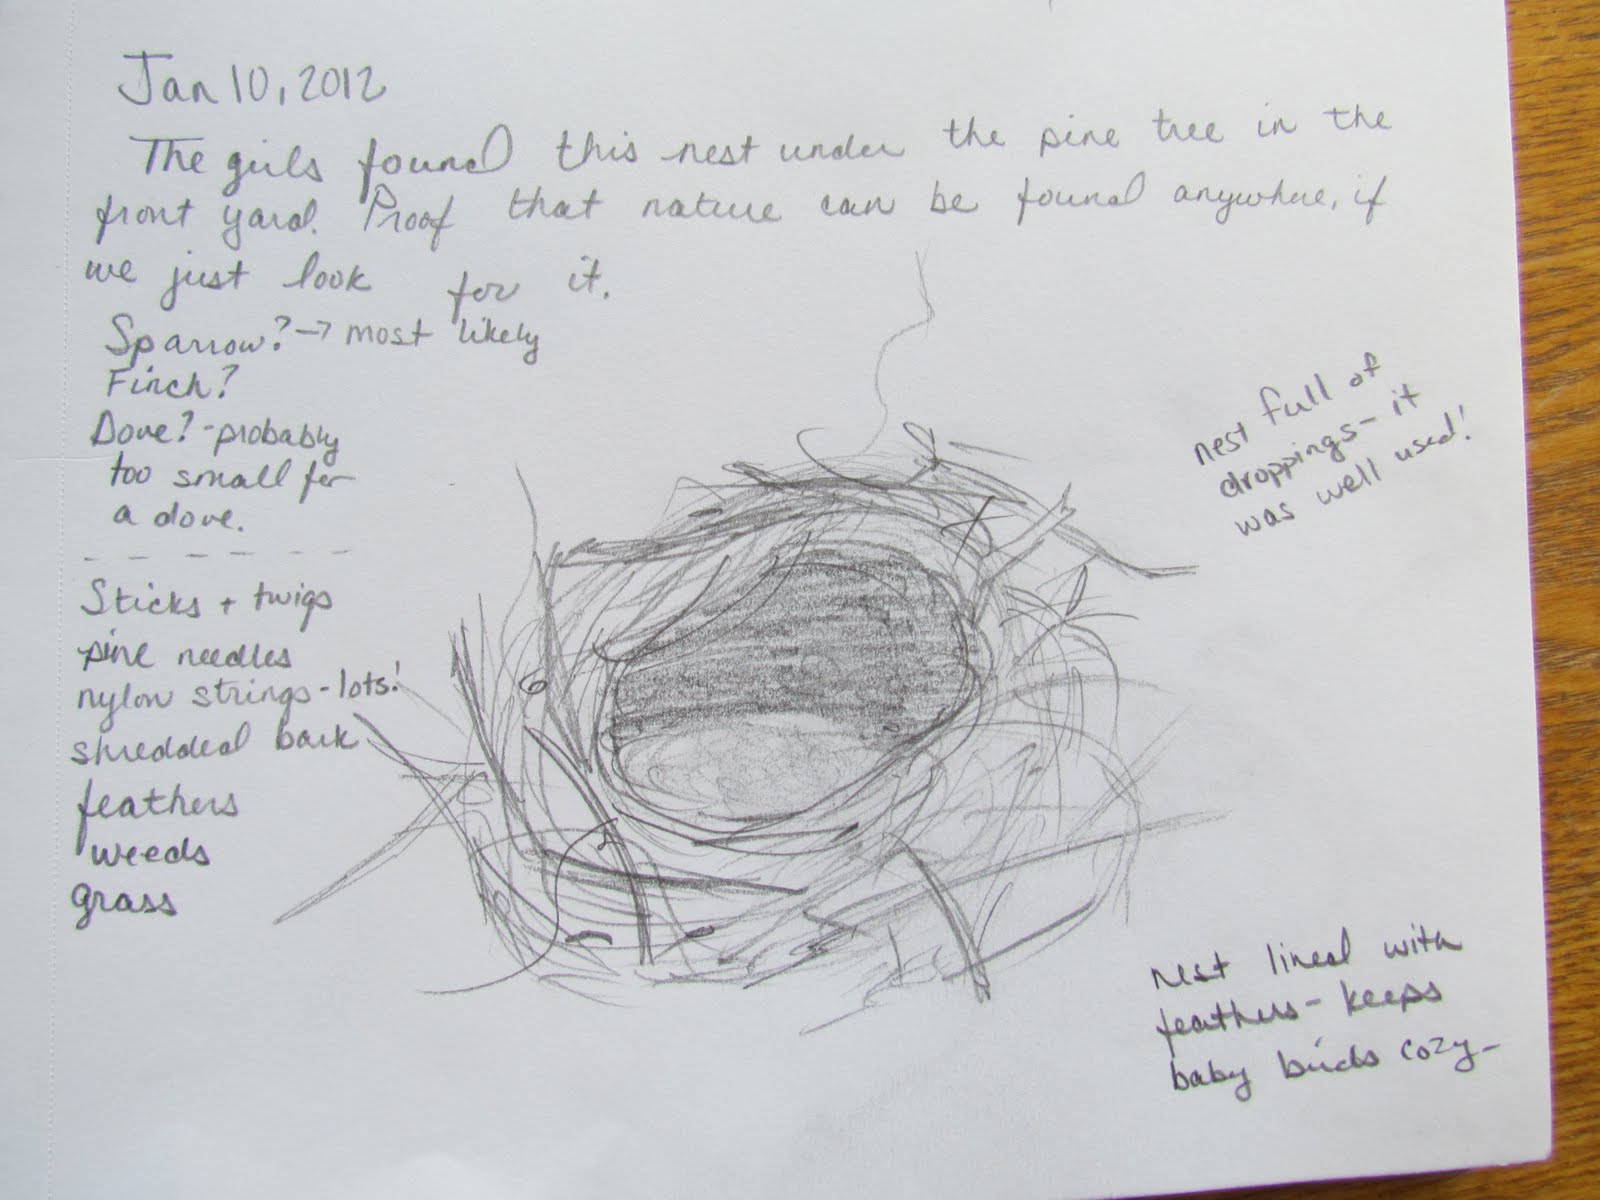 Jan 10, 2012
The girls found this nest under the pine tree in the
front yard. Proof that nature can be found anywhere, if
we just look for it.
Sparrow? → most likely
Finch?
Dove? - probably
too small for
a dove.
Sticks + twigs
pine needles
nylon strings - lots!
shredded bark
feathers
weeds
grass
nest full of
droppings - it
was well used!
nest lined with
feathers - keeps
baby birds cozy -